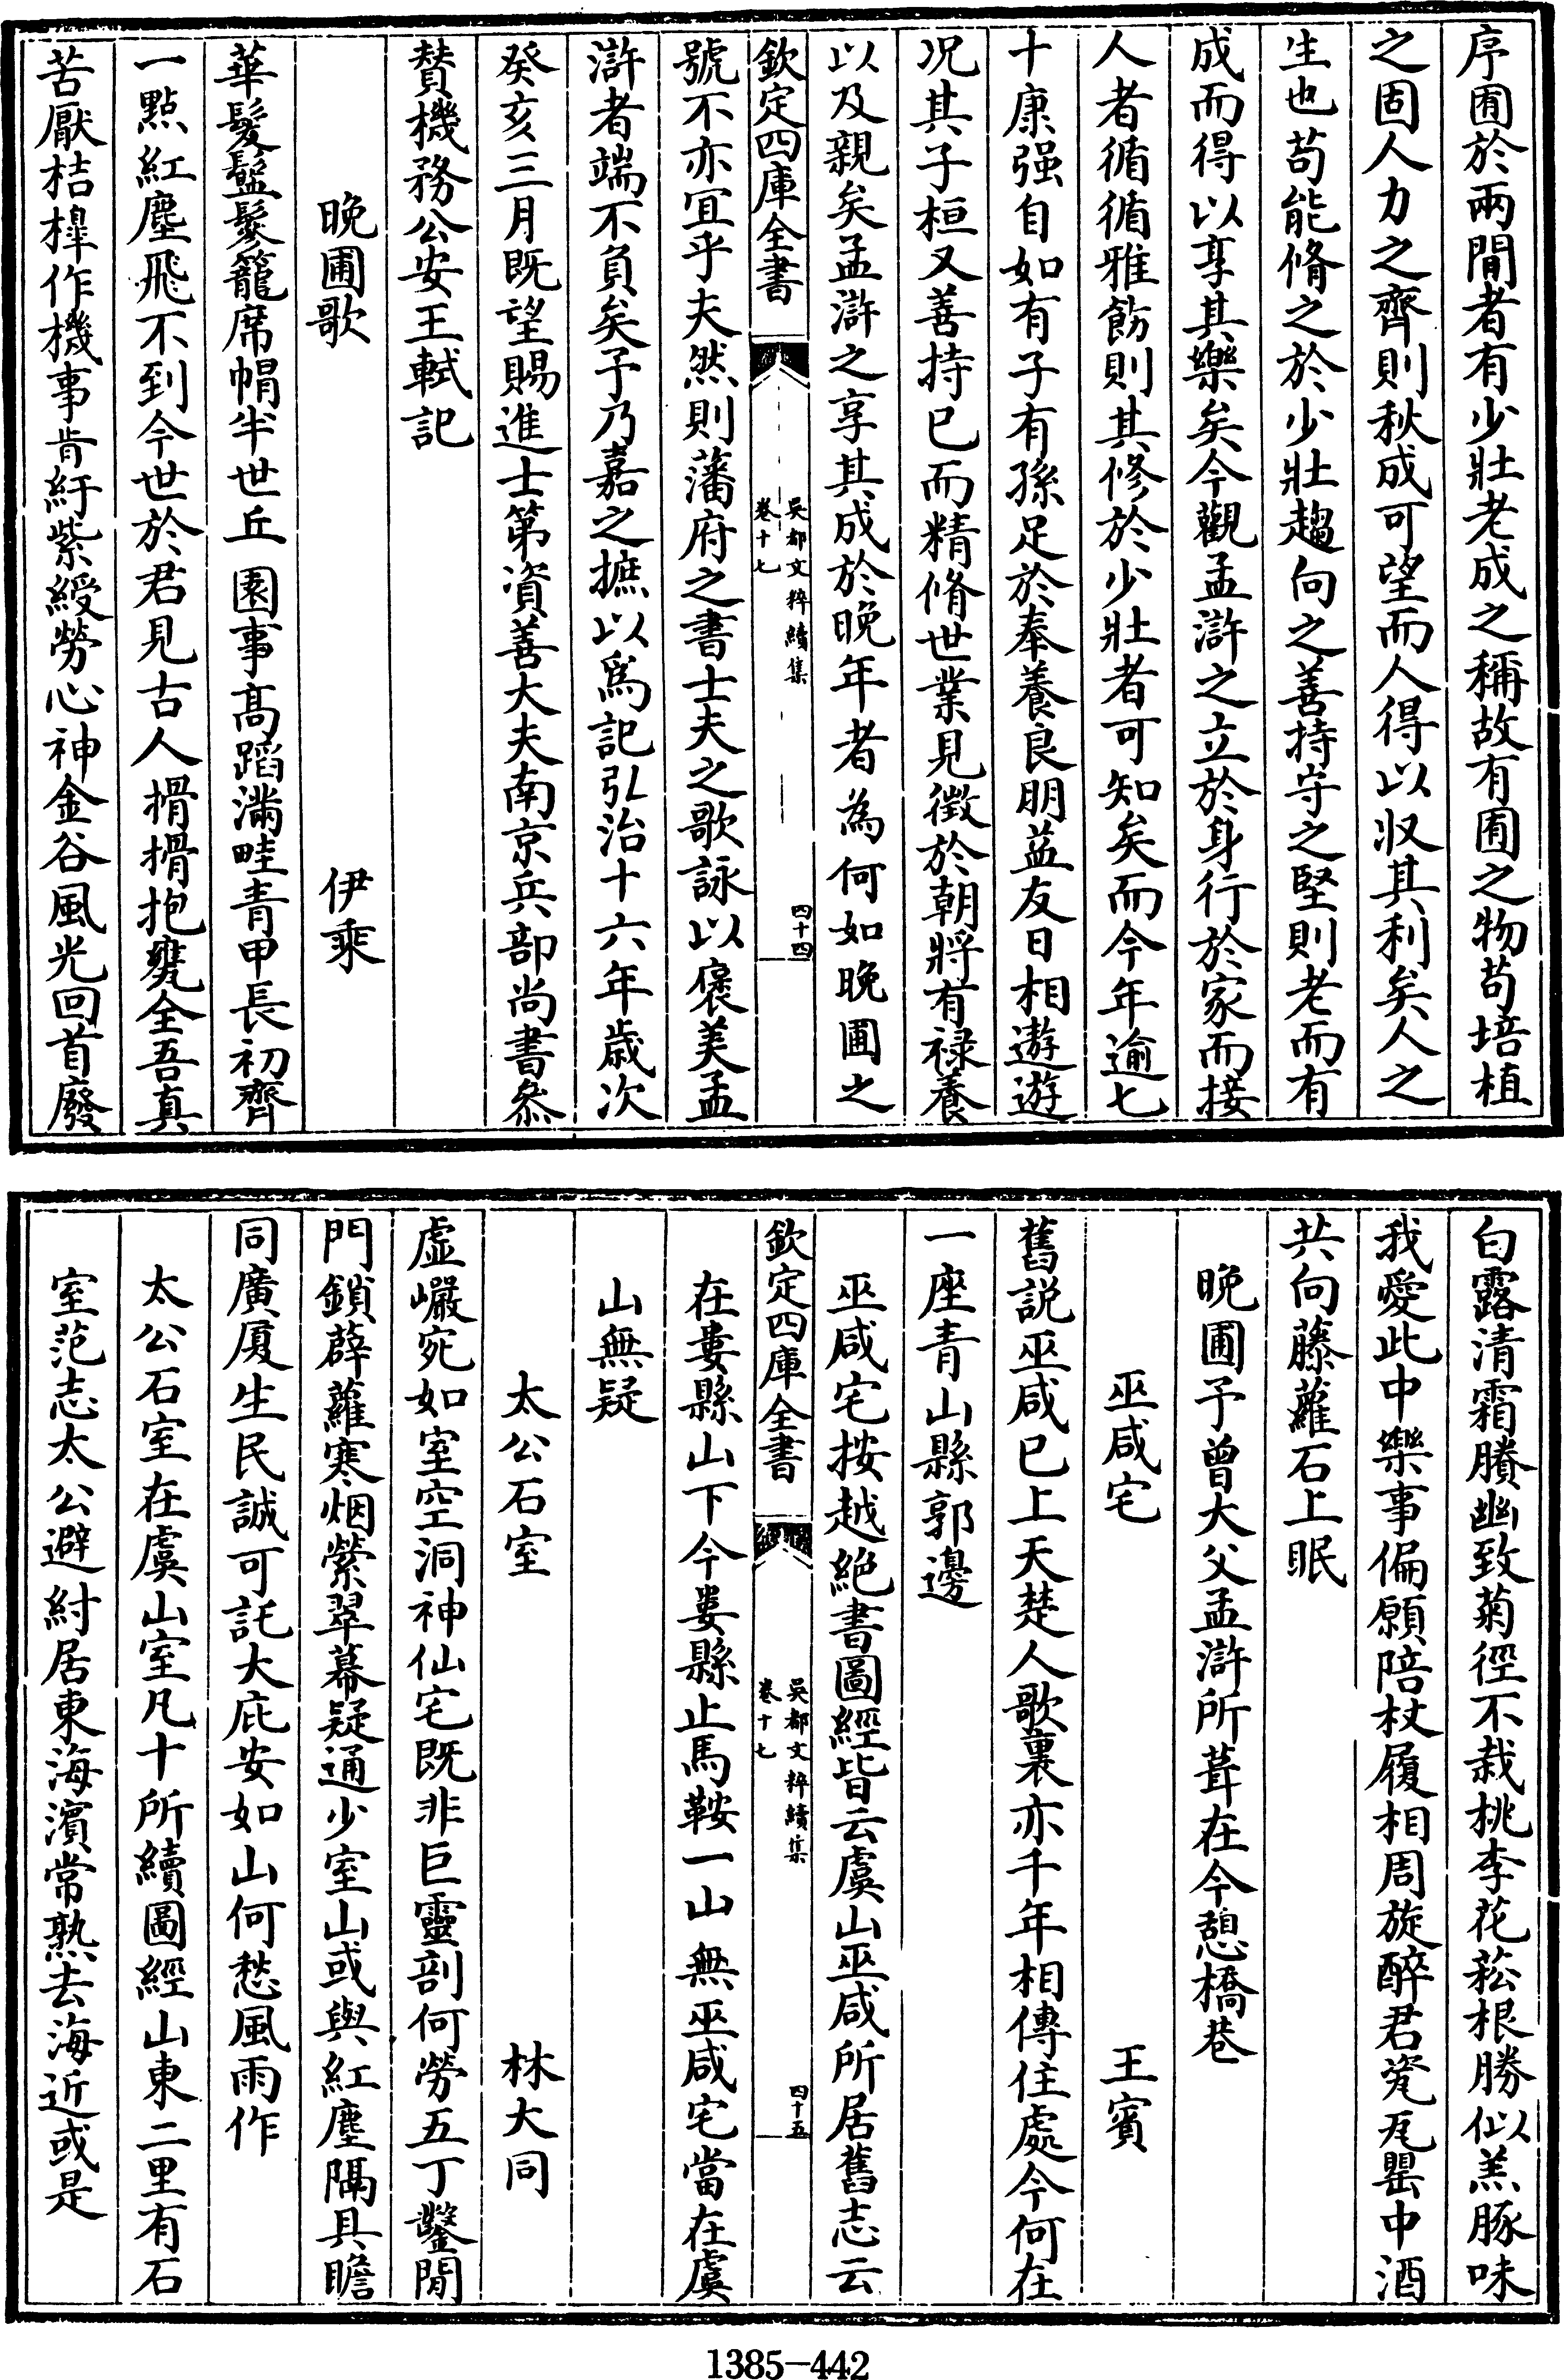 序囿於兩間者有少壯老成之稱故有囿之物苟培植
之固人力之齊則秋成可望而人得以收其利矣人之
生也苟能脩之於少壯趨向之善持守之堅則老而有
成而得以享其樂矣今觀孟滸之立於身行於家而接
人者循循雅飭則其修於少壯者可知矣而今年逾七
十康强自如有子有孫足於奉養良朋益友日相遨遊
况其子桓又善持已而精脩世業見徴於朝將有禄養
以及親矣孟滸之享其成於晚年者為何如晚圃之
欽定四庫全書
吳都文粹續集
卷十七
四十四
號不亦宜乎夫然則藩府之書士夫之歌詠以褒美孟
滸者端不負矣予乃嘉之摭以爲記弘治十六年歲次
癸亥三月既望賜進士第資善大夫南京兵部尚書叅
賛機務公安王軾記
晚圃歌
伊乘
華髮鬅鬙籠席帽半世丘園事高蹈滿畦青甲長初齊
一點紅塵飛不到今世於君見古人搰搰抱甕全吾真
苦厭桔槹作機事肯紆紫綬勞心神金谷風光回首廢
白露清霜賸幽致菊徑不栽桃李花菘根勝似羔豚味
我愛此中樂事偏願陪杖履相周旋醉君甕瓦罌中酒
共向藤蘿石上眠
晚圃予曾大父孟滸所葺在今憩橋巷
巫咸宅
王賓
舊説巫咸已上天楚人歌裏亦千年相傳住處今何在
一座青山縣郭邊
巫咸宅按越絶書圖經皆云虞山巫咸所居舊志云
欽定四庫全書
吳都文粹續集
卷十七
四十五
在婁縣山下今婁縣止馬鞍一山無巫咸宅當在虞
山無疑
太公石室
林大同
虛巖宛如室空洞神仙宅既非巨靈剖何勞五丁鑿閒
門鎖薜蘿寒烟縈翠幕疑通少室山或與紅塵隔具瞻
同廣厦生民誠可託大庇安如山何愁風雨作
太公石室在虞山室凡十所續圖經山東二里有石
室范志太公避紂居東海濱常熟去海近或是
1385-442